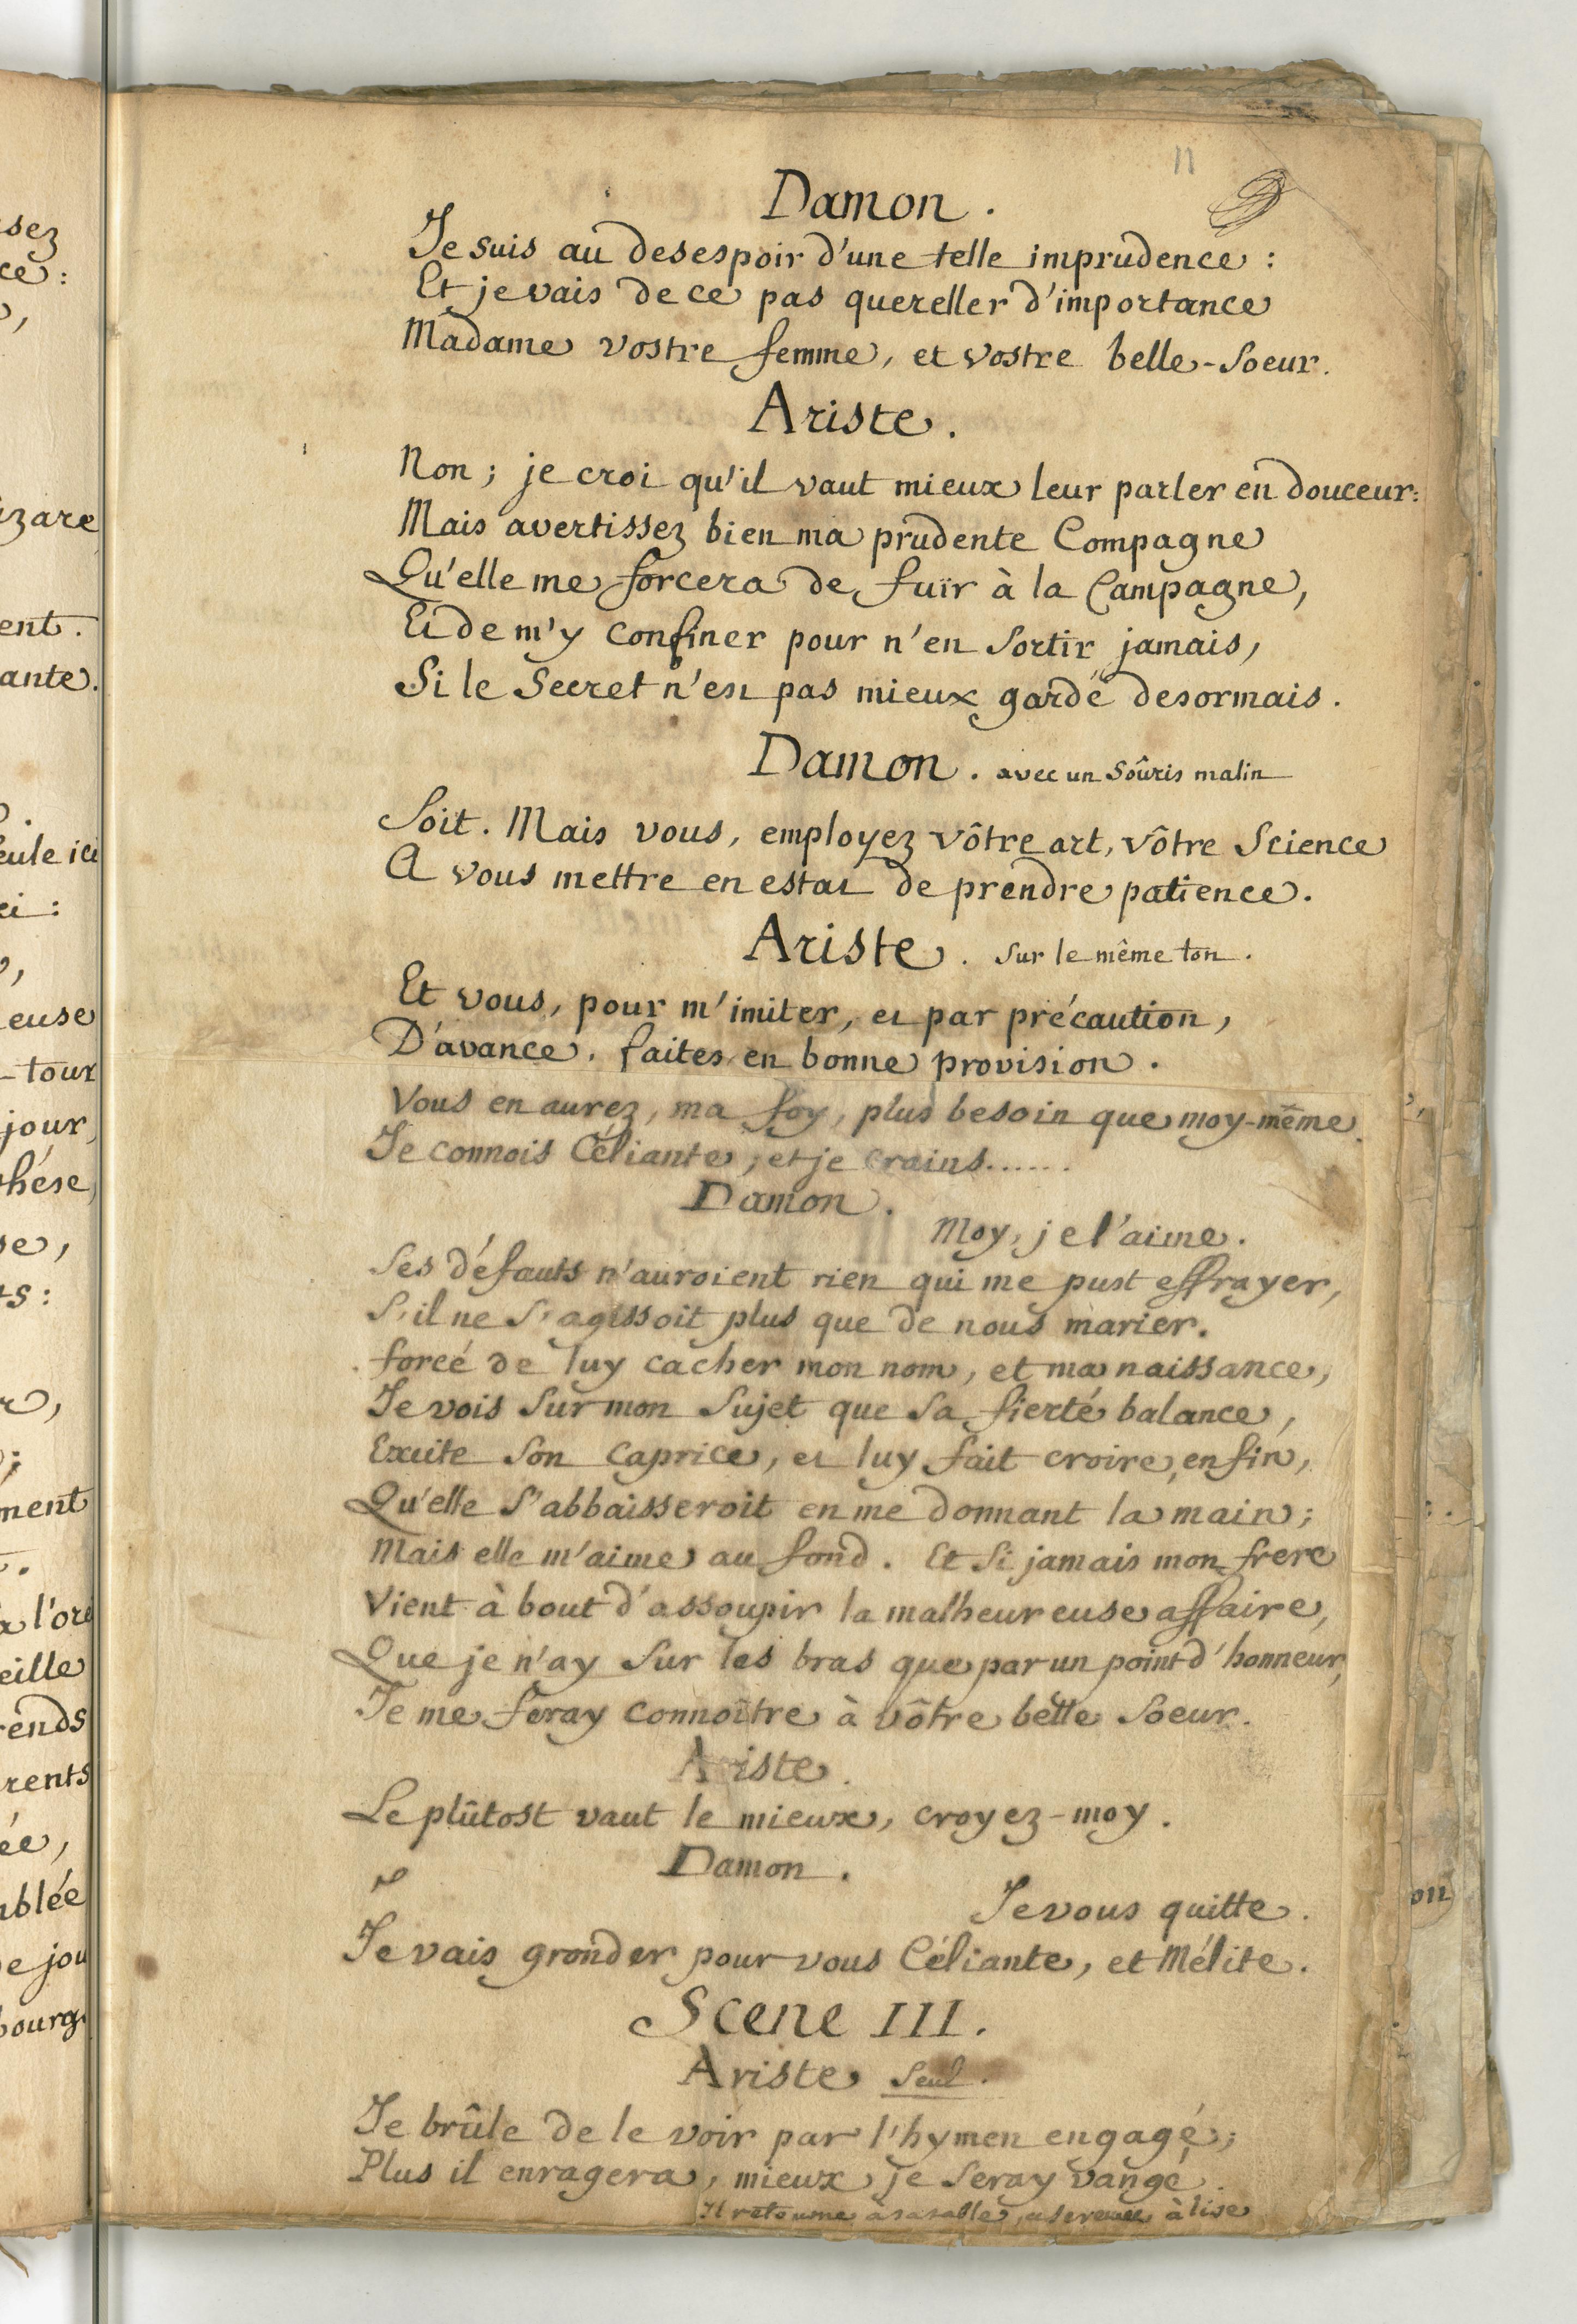 sez
ce:
izare
ent.
ante.
eule ici
ci:
euse
tour
jour,
thése,
se,
ts:
ment
a l'ore
eille
rends
rents
ée,
mblée
e jou
bourg
11
Damon.
Je suis au desespoir d'une telle imprudence :
Et je vais de ce pas quereller d'importance
Madame vostre femme, et vostre belle-soeur.
Ariste.
Non ; je croi qu'il vaut mieux leur parler en douceur:
Mais avertissez bien ma prudente Compagne
Qu'elle me forcera de fuïr à la Campagne,
Et de m'y confiner pour n'en sortir jamais,
Si le Secret n'est pas mieux gardé desormais.
Damon. avec un soûris malin
Soit. Mais vous, employez vôtre art, vôtre Science
A vous mettre en estat de prendre patience.
Ariste. sur le même ton.
Et vous, pour m'imiter, et par précaution,
D'avance. faites en bonne provision.
Vous en aurez, ma foy, plus besoin que moy-même.
Je connois Céliante, et je crains......
Damon.
Moy, je l'aime.
Ses défauts n'auroient rien qui me pust effrayer,
S'il ne s'agissoit plus que de nous marier.
forcé de luy cacher mon nom, et ma naissance,
Je vois sur mon sujet que sa fierté balance,
Excite son caprice, et luy fait croire, enfin,
Qu'elle s'abbaisseroit en me donnant la main;
Mais elle m'aime au fond. Et si jamais mon frere
Vient à bout d'assoupir la malheureuse affaire,
Que je n'ay sur les bras que par un point d'honneur,
Je me feray connoître à vôtre belle soeur.
Ariste.
Le plûtost vaut le mieux, croyez-moy.
Damon.
Je vous quitte.
Je vais gronder pour vous Céliante, et Mélite.
on
Scene III.
Ariste seul.
Je brûle de le voir par l'hymen engagé;
Plus il enragera, mieux je seray vangé.
Il retourne à sa table, et se remet à lire